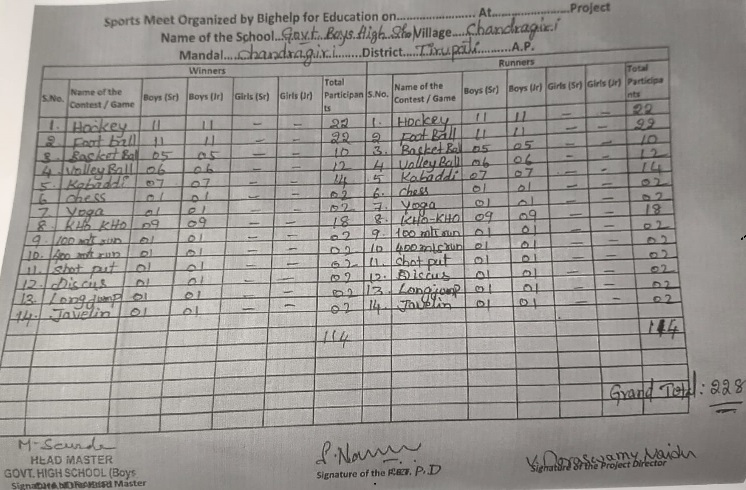 Sports Meet Organized by Bighelp for Education on........................ At........................Project
Name of the School...Govt. Boys High Sho Village...Chandragiri
Mandal....Chandragiri.......District....Tirupati.......A.P.
Winners Runners
S.No. Name of the Contest / Game Boys (Sr) Boys (Jr) Girls (Sr) Girls (Jr) Total Participan ts S.No. Name of the Contest / Game Boys (Sr) Boys (Jr) Girls (Sr) Girls (Jr) Total Participa nts
1. Hockey 11 11 - - 22 1. Hockey 11 11 - - 22
2 Foot ball 11 11 - - 22 2 Foot Ball 11 11 - - 22
3 Basket Bal 05 05 - - 10 3. Basket Bal 05 05 - - 10
4. Volley Ball 06 06 - - 12 4 Volley Ball 06 06 - - 12
5. Kabaddi 07 07 - - 14 5 Kabaddi 07 07 - - 14
6 chess 01 01 - - 02 6. chess 01 01 - - 02
7 Yoga 01 01 - - 02 7. Yoga 01 01 - - 02
8. KHO KHO 09 09 - - 18 8. KHO-KHO 09 09 - - 18
9. 100 mts run 01 01 - - 02 9. 100 mts run 01 01 - - 02
10. 400 mts run 01 01 - - 02 10 400 mts run 01 01 - - 02
11. Shot put 01 01 - - 02 11. Shot put 01 01 - - 02
12. Discus 01 01 - - 02 12. Discus 01 01 - - 02
13. Long jump 01 01 - - 02 13. Long jump 01 01 - - 02
14. Javelin 01 01 - - 02 14. Javelin 01 01 - - 02
114 114
Grand Total: 228
HEAD MASTER
GOVT. HIGH SCHOOL (Boys
Master
Signature of the P.D
V. Doraswamy Naidu
Signature of the Project Director